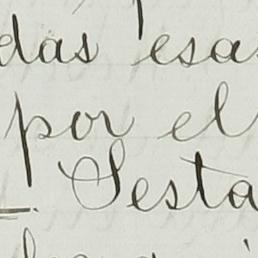 das esas
por el
Sesta